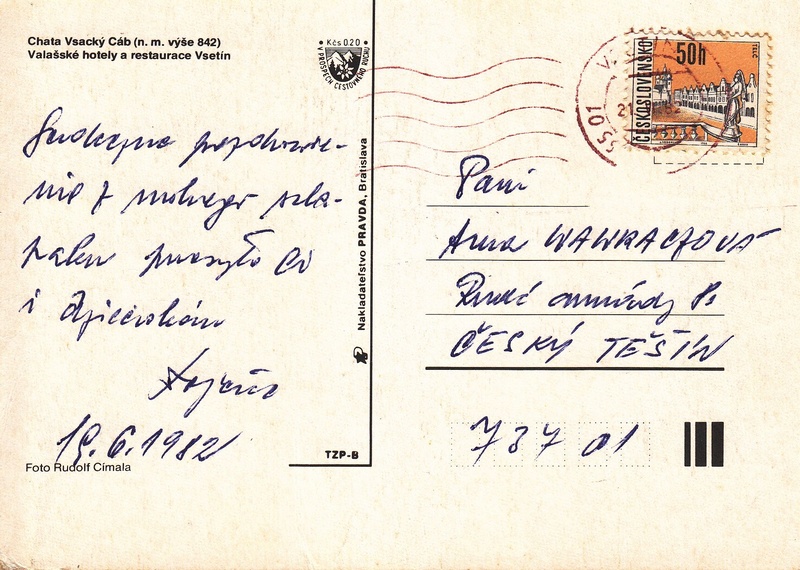 Chata Vsacký Cáb (n. m. výše 842)
Valašské hotely a restaurace Vsetín
Kčs 0.20
V PROSPĚCH CESTOVNÉHO RUCHU
Serdeczne pozdrowie-
nie z
przesyła Ci
i
19.6.1982
Foto Rudolf Címala
TZP-B
Nakladateľstvo PRAVDA, Bratislava
ČESKOSLOVENSKO
50h
TELČ
55 01
Pani
Anna WAWRACZOVÁ
Rudé armády 8.
ČESKÝ TĚŠÍN
737 01